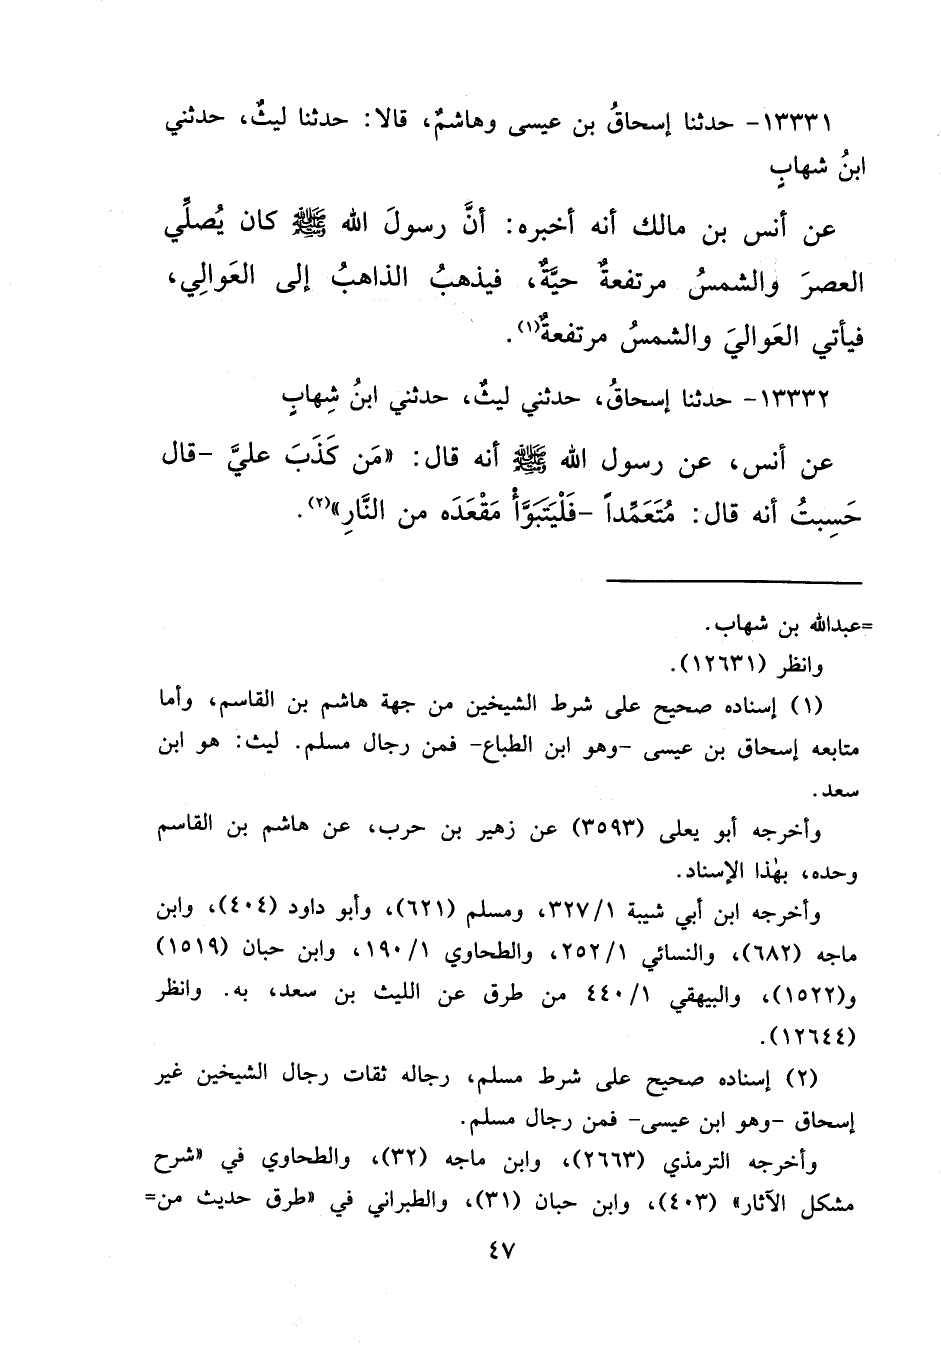 ١٣٣٣١- حدثنا إسحاقُ بن عيسى وهاشمٌ، قالا: حدثنا ليثٌ، حدثني
ابنُ شهابٍ
عن أنس بن مالك أنه أخبره: أنَّ رسولَ الله ﷺ كان يُصلِّي
العصرَ والشمسُ مرتفعةٌ حيَّةٌ، فيذهبُ الذاهبُ إلى العَوالِي،
فيأتي العَواليَ والشمسُ مرتفعةٌ(١).
١٣٣٣٢- حدثنا إسحاقُ، حدثني ليثٌ، حدثني ابنُ شِهابٍ
عن أنس، عن رسول الله ﷺ أنه قال: «مَن كَذَبَ عليَّ -قال
حَسِبتُ أنه قال: مُتَعَمِّداً -فَلْيَتَبَوَّأْ مَقْعَدَه من النَّارِ»(٢).
=عبدالله بن شهاب.
وانظر (١٢٦٣١).
(١) إسناده صحيح على شرط الشيخين من جهة هاشم بن القاسم، وأما
متابعه إسحاق بن عيسى -وهو ابن الطباع- فمن رجال مسلم. ليث: هو ابن
سعد.
وأخرجه أبو يعلى (٣٥٩٣) عن زهير بن حرب، عن هاشم بن القاسم
وحده، بهٰذا الإسناد.
وأخرجه ابن أبي شيبة ٣٢٧/١، ومسلم (٦٢١)، وأبو داود (٤٠٤)، وابن
ماجه (٦٨٢)، والنسائي ٢٥٢/١، والطحاوي ١٩٠/١، وابن حبان (١٥١٩)
و(١٥٢٢)، والبيهقي ٤٤٠/١ من طرق عن الليث بن سعد، به. وانظر
(١٢٦٤٤).
(٢) إسناده صحيح على شرط مسلم، رجاله ثقات رجال الشيخين غير
إسحاق -وهو ابن عيسى- فمن رجال مسلم.
وأخرجه الترمذي (٢٦٦٣)، وابن ماجه (٣٢)، والطحاوي في «شرح
مشكل الآثار» (٤٠٣)، وابن حبان (٣١)، والطبراني في «طرق حديث من=
٤٧